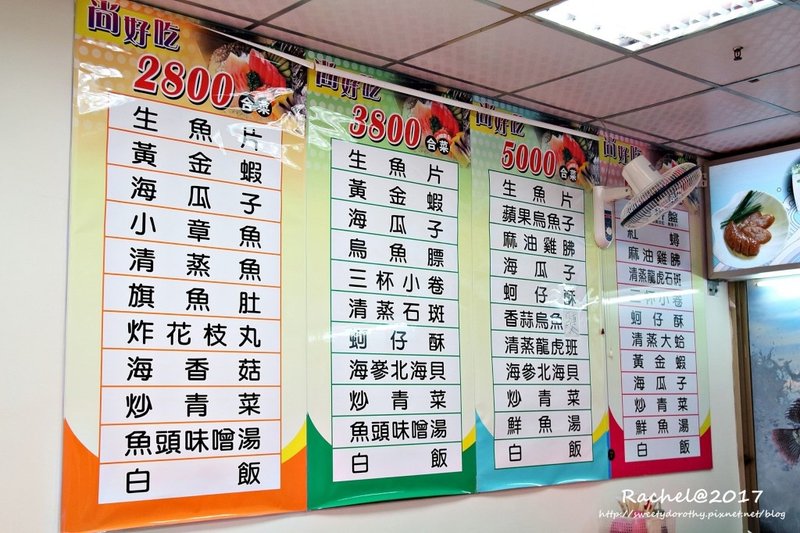 尚好吃
2800
合菜
生魚片
黃金蝦
海瓜子
小章魚
清蒸魚
旗魚肚
炸花枝丸
海香菇
炒青菜
魚頭味噌湯
白飯
尚好吃
3800
合菜
生魚片
黃金蝦
海瓜子
烏魚膘
三杯小卷
清蒸石斑
蚵仔酥
海參北海貝
炒青菜
魚頭味噌湯
白飯
尚好吃
5000
合菜
生魚片
蘋果烏魚子
麻油雞腁
海瓜子
蚵仔酥
香蒜烏魚
清蒸龍虎班
海參北海貝
炒青菜
鮮魚湯
白飯
尚好吃
盤
紅蟳
麻油雞腁
清蒸龍虎石斑
三杯小卷
蚵仔酥
清蒸大蛤
黃金蝦
海瓜子
炒青菜
鮮魚湯
白飯
Rachel@2017
http://sweetydorothy.pixnet.net/blog